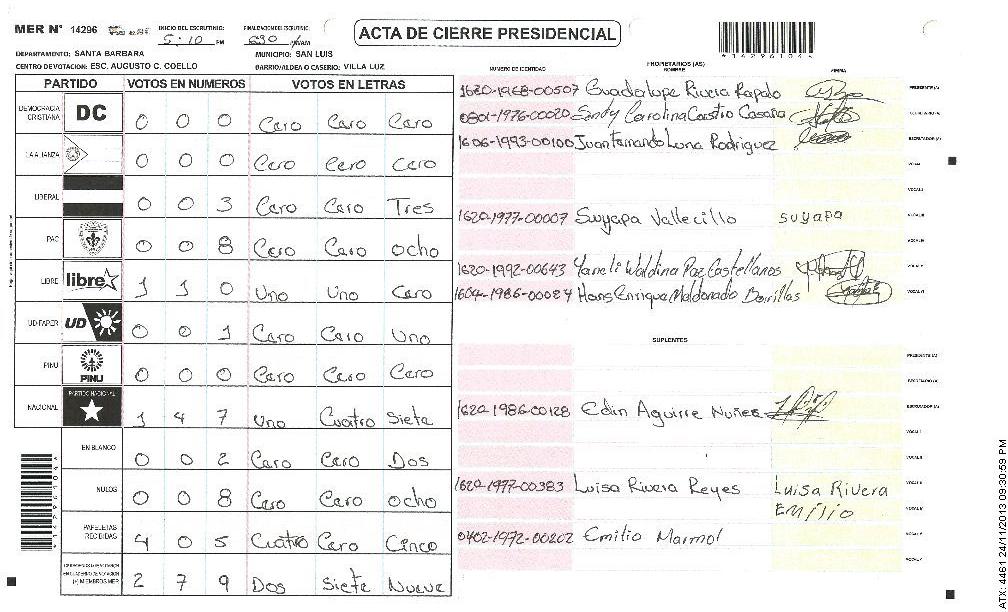 MER N° 14296 INICIO DEL ESCRUTINIO: 5:10 PM FINALIZACION DEL ESCRUTINIO: 630 PM/AM
ACTA DE CIERRE PRESIDENCIAL
DEPARTAMENTO: SANTA BARBARA MUNICIPIO: SAN LUIS
CENTRO DE VOTACION: ESC. AUGUSTO C. COELLO BARRIO/ALDEA O CASERIO: VILLA LUZ
PARTIDO VOTOS EN NUMEROS VOTOS EN LETRAS
DEMOCRACIA CRISTIANA DC 0 0 0 Cero Cero Cero
LA ALIANZA 0 0 0 Cero Cero Cero
LIBERAL 0 0 3 Cero Cero Tres
PAC 0 0 8 Cero Cero ocho
LIBRE libre 1 1 0 Uno Uno Cero
UD-FAPER UD 0 0 1 Cero Cero Uno
PINU PINU 0 0 0 Cero Cero Cero
NACIONAL PARTIDO NACIONAL 1 4 7 Uno Cuatro Siete
EN BLANCO 0 0 2 Cero Cero Dos
NULOS 0 0 8 Cero Cero ocho
PAPELETAS RECIBIDAS 4 0 5 Cuatro Cero Cinco
(+) MIEMBROS MER 2 7 9 Dos Siete Nueve
NUMERO DE IDENTIDAD PROPIETARIOS (AS) NOMBRE FIRMA
1620-1968-00507 Guadalupe Rivera Rapalo PRESIDENTE (A)
0801-1976-00020 Sandy Carolina Castro Casaña SECRETARIO (A)
1606-1993-00100 Juan Fernando Luna Rodriguez ESCRUTADOR (A)
VOCAL I
VOCAL II
1620-1977-00007 Suyapa Vallecillo suyapa VOCAL III
VOCAL IV
1620-1992-00643 Yameli Waldina Paz Castellanos VOCAL V
1604-1986-00084 Hans Enrique Maldonado VOCAL VI
SUPLENTES
PRESIDENTE (A)
SECRETARIO (A)
1620-1986-00128 Edin Aguirre Nuñes ESCRUTADOR (A)
VOCAL I
VOCAL II
1620-1977-00383 Luisa Rivera Reyes Luisa Rivera VOCAL III
Emilio VOCAL IV
0402-1972-00202 Emilio Marmol VOCAL V
VOCAL VI
*14296104*
ATX: 4461 24/11/2013 09:30:59 PM